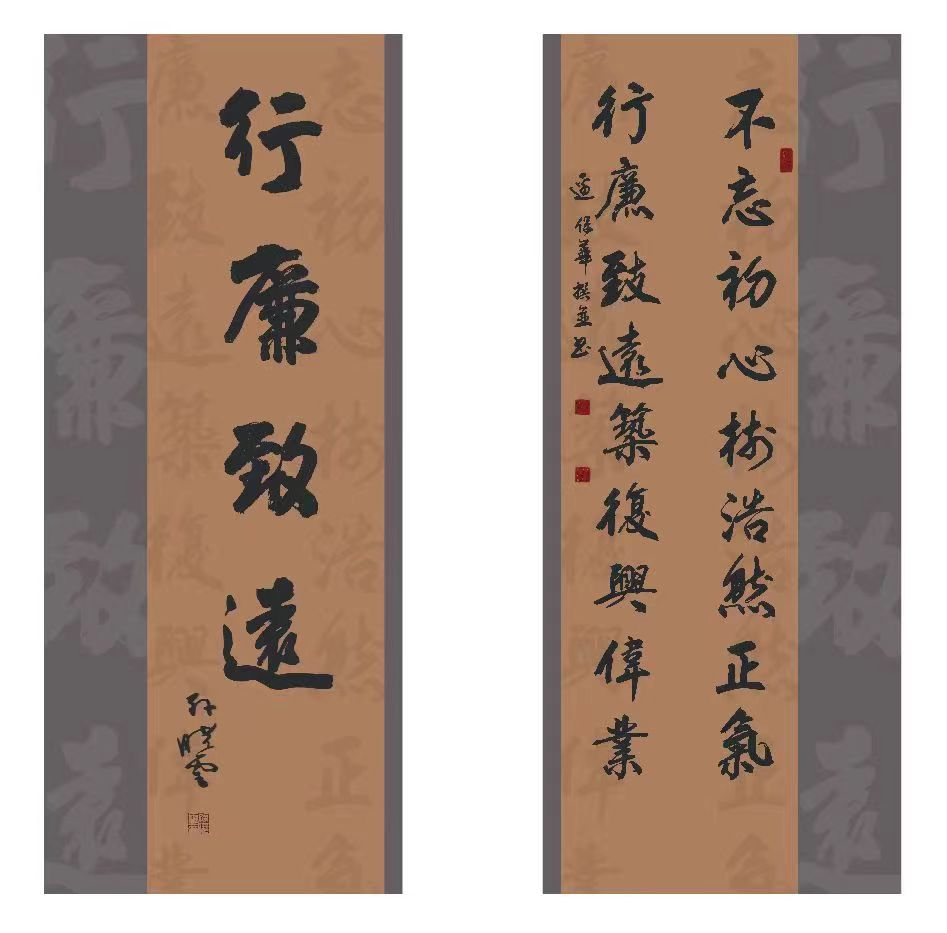 行廉致遠
孙晓雲
不忘初心树浩然正氣
行廉致遠築復興偉業
保華撰並書